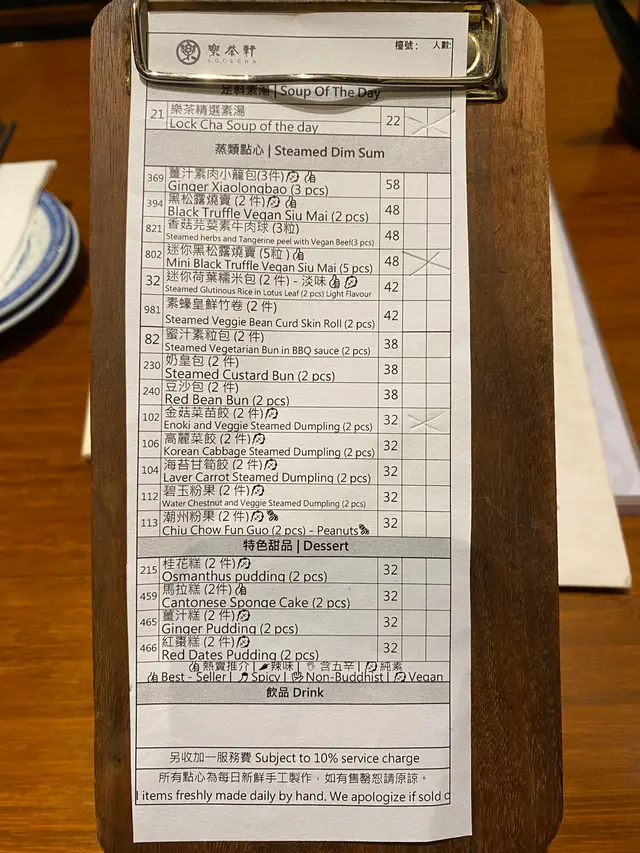 樂茶軒
LOCKCHA
檯號: 人數:
足料素湯 | Soup Of The Day
21 樂茶精選素湯 22
Lock Cha Soup of the day
蒸類點心 | Steamed Dim Sum
369 薑汁素肉小籠包(3件) 58
Ginger Xiaolongbao (3 pcs)
394 黑松露燒賣 (2 件) 48
Black Truffle Vegan Siu Mai (2 pcs)
821 香菇芫荽素牛肉球 (3粒) 48
Steamed herbs and Tangerine peel with Vegan Beef(3 pcs)
802 迷你黑松露燒賣 (5粒) 48
Mini Black Truffle Vegan Siu Mai (5 pcs)
32 迷你荷葉糯米包 (2 件) - 淡味 42
Steamed Glutinous Rice in Lotus Leaf (2 pcs) Light Flavour
981 素蠔皇鮮竹卷 (2 件) 42
Steamed Veggie Bean Curd Skin Roll (2 pcs)
82 蜜汁素粒包 (2 件) 38
Steamed Vegetarian Bun in BBQ sauce (2 pcs)
230 奶皇包 (2 件) 38
Steamed Custard Bun (2 pcs)
240 豆沙包 (2 件) 38
Red Bean Bun (2 pcs)
102 金菇菜苗餃 (2 件) 32
Enoki and Veggie Steamed Dumpling (2 pcs)
106 高麗菜餃 (2 件) 32
Korean Cabbage Steamed Dumpling (2 pcs)
104 海苔甘筍餃 (2 件) 32
Laver Carrot Steamed Dumpling (2 pcs)
112 碧玉粉果 (2 件) 32
Water Chestnut and Veggie Steamed Dumpling (2 pcs)
113 潮州粉果 (2 件) 32
Chiu Chow Fun Guo (2 pcs) - Peanuts
特色甜品 | Dessert
215 桂花糕 (2 件) 32
Osmanthus pudding (2 pcs)
459 馬拉糕 (2件) 32
Cantonese Sponge Cake (2 pcs)
465 薑汁糕 (2 件) 32
Ginger Pudding (2 pcs)
466 紅棗糕 (2 件) 32
Red Dates Pudding (2 pcs)
熱賣推介 | 辣味 | 含五辛 | 純素
Best - Seller | Spicy | Non-Buddhist | Vegan
飲品 Drink
另收加一服務費 Subject to 10% service charge
所有點心為每日新鮮手工製作，如有售罄恕請原諒。
items freshly made daily by hand. We apologize if sold